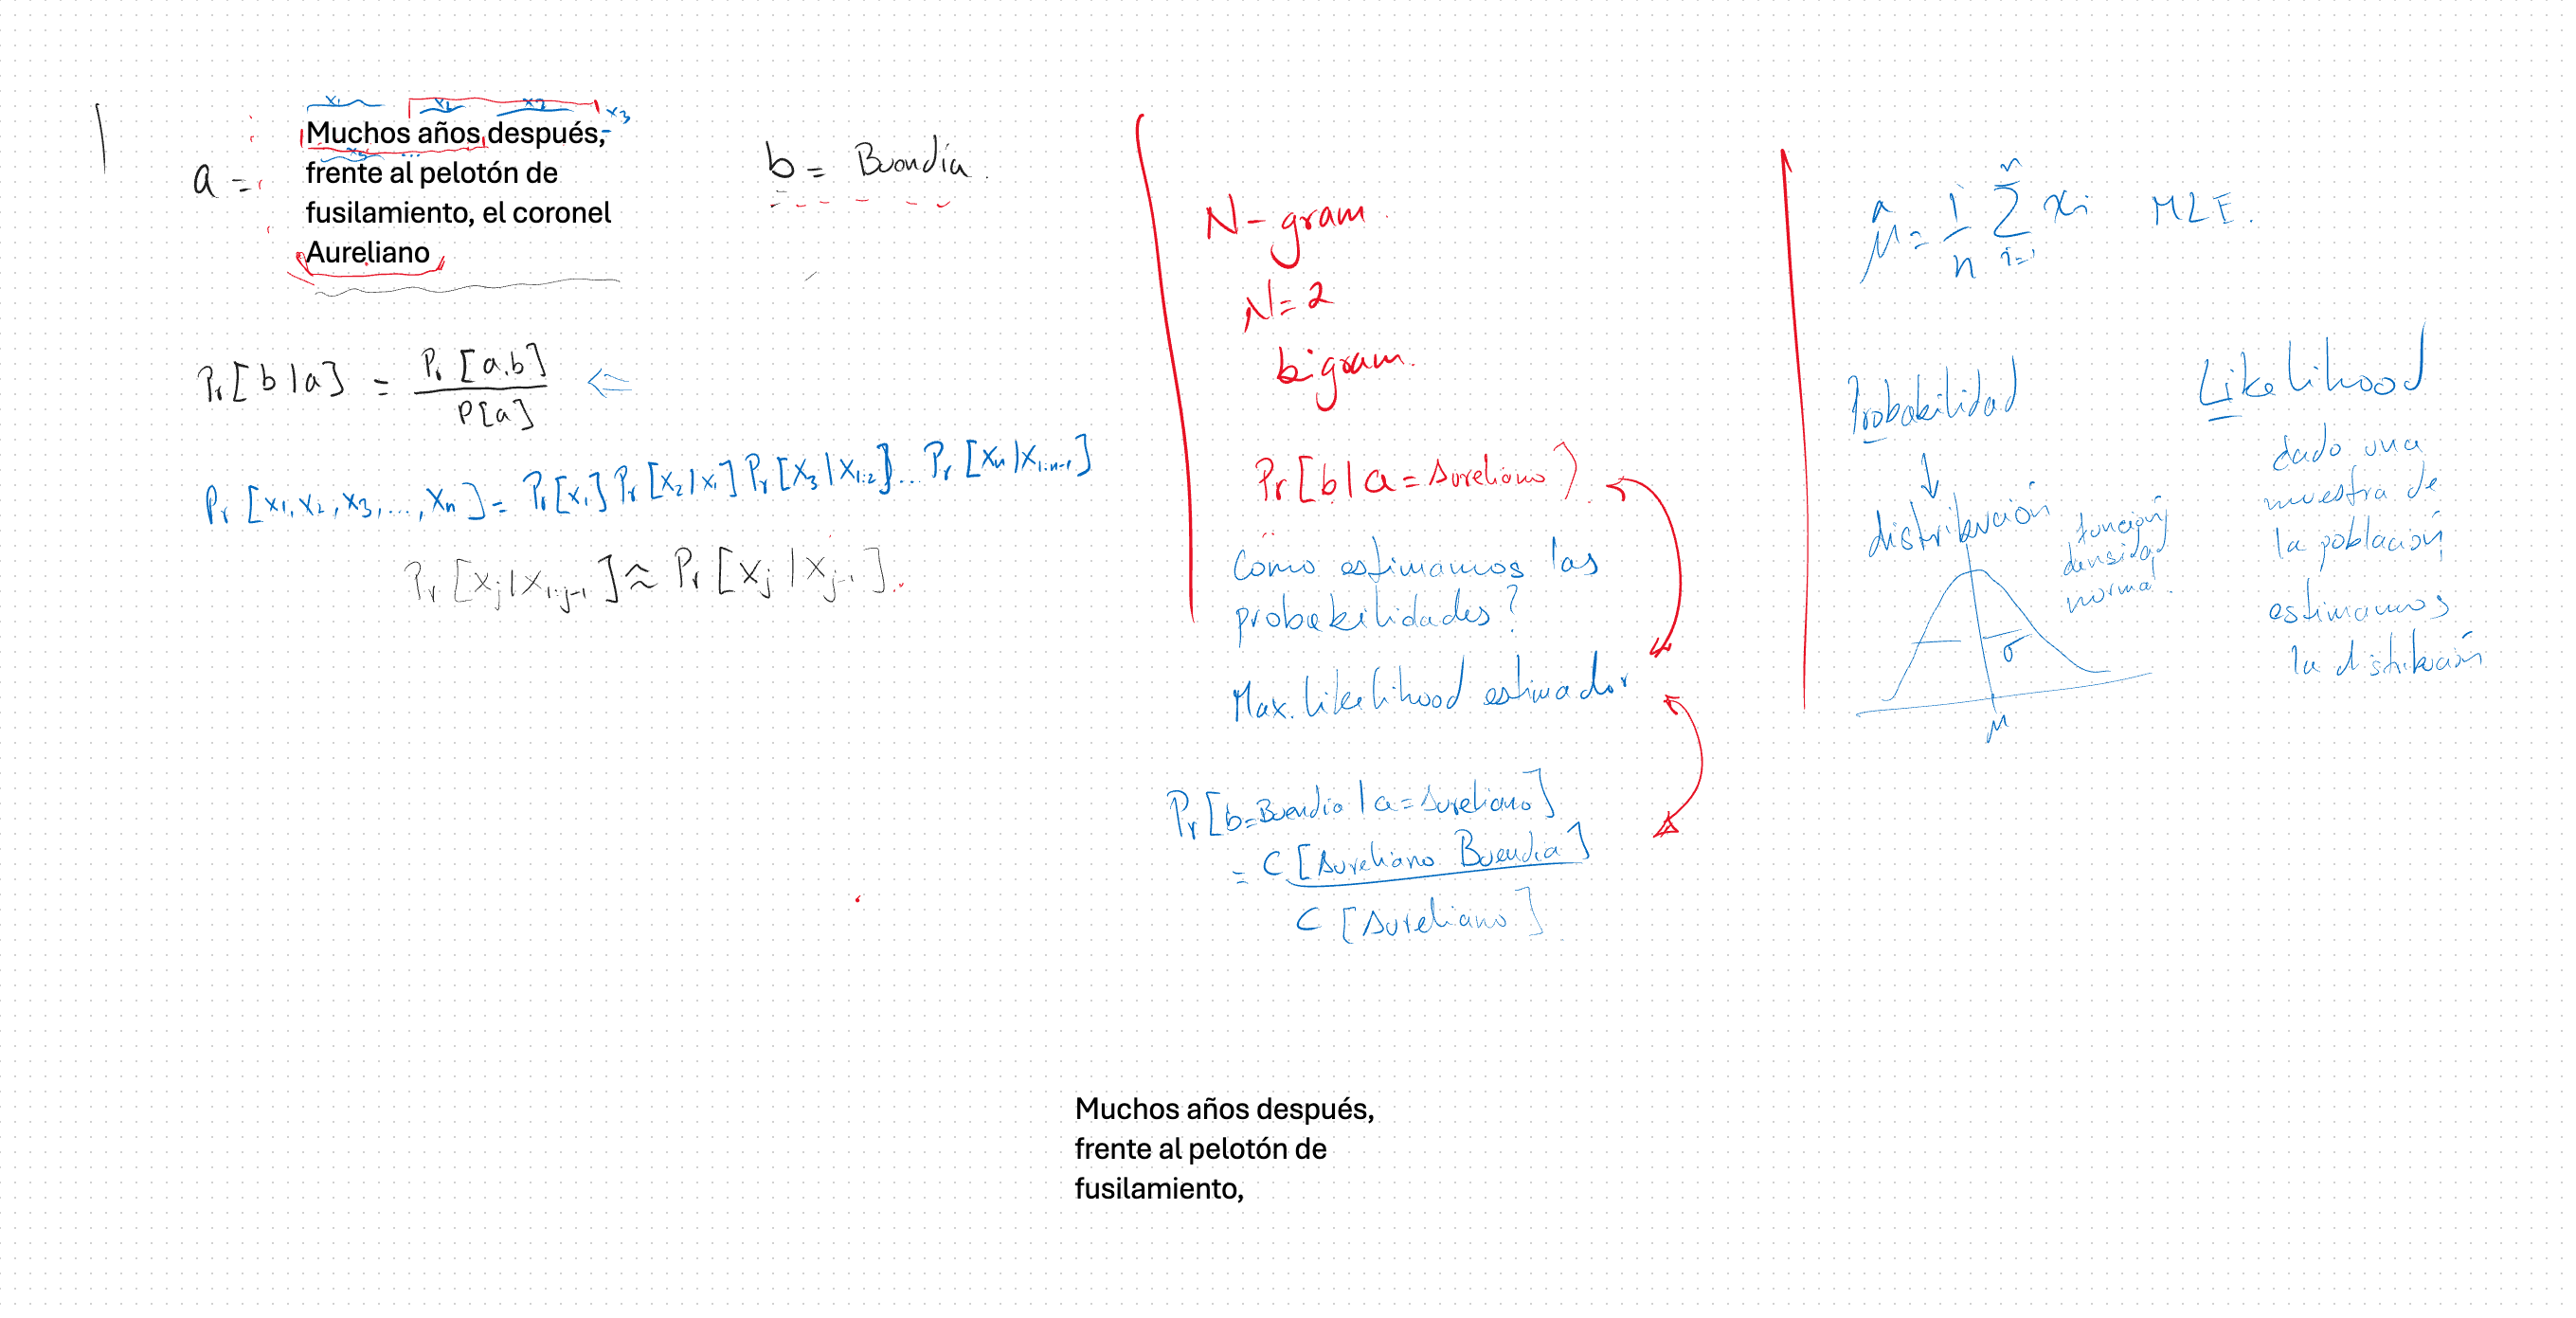 x₁ x₂ x₃ x₃
Muchos años después,
frente al pelotón de
fusilamiento, el coronel
Aureliano
a =
b = Buendía.
Pr[b|a] = Pr[a,b] / P[a] ⇐
Pr[x₁,x₂,x₃,...,xₙ] = Pr[x₁] Pr[x₂|x₁] Pr[x₃|x₁:₂]... Pr[xₙ|x₁:ₙ₋₁]
Pr[xⱼ|x₁:ⱼ₋₁] ≈ Pr[xⱼ|xⱼ₋₁].
N-gram.
N=2
bigram.
Pr[b|a=Aureliano]
Como estimamos las
probabilidades?
Max. likelihood estimador
Pr[b=Buendia|a=Aureliano]
= C[Aureliano Buendia]
C[Aureliano]
μ̂ = 1/n Σ xᵢ MLE.
n
i=1
Probabilidad
↓
distribución
función
densidad
normal.
σ
μ
Likelihood
dado una
muestra de
la población
estimamos
la distribución
Muchos años después,
frente al pelotón de
fusilamiento,